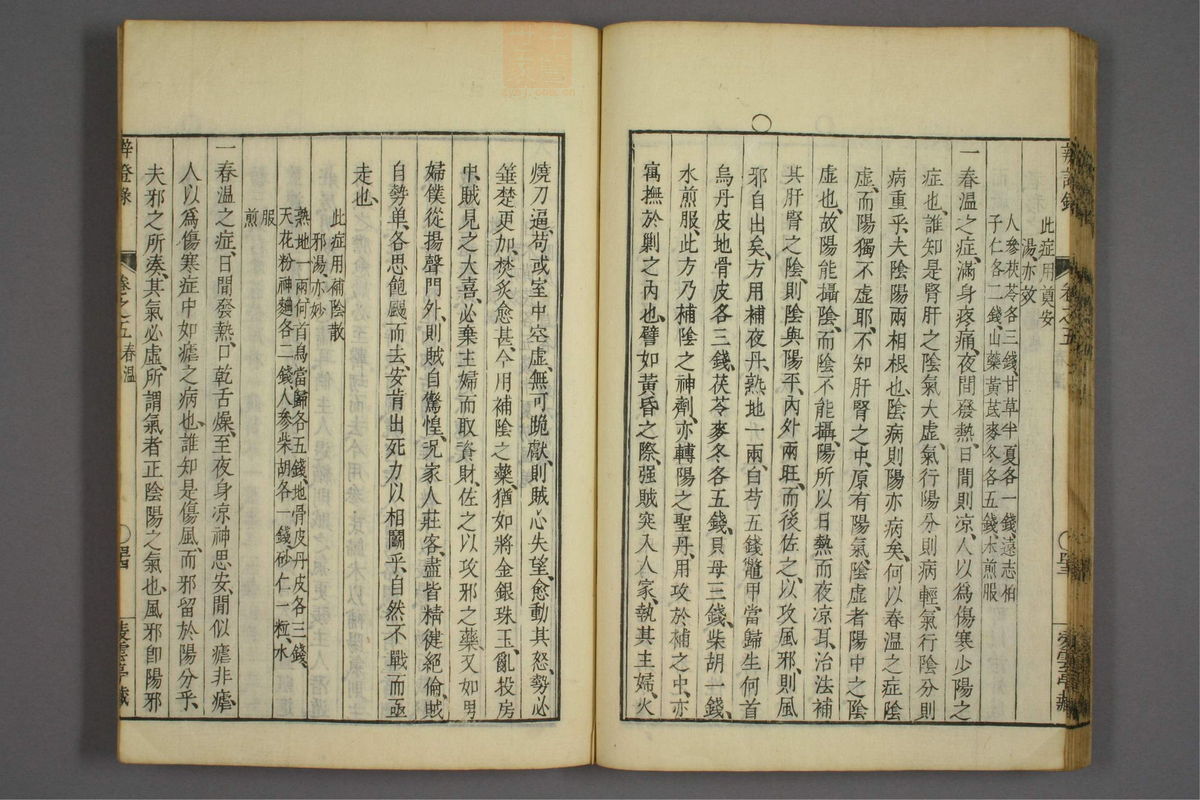 辨證錄 卷之五
此症用奠安
湯亦效
人參茯苓各三錢、甘草半夏各一錢、遠志伯
子仁各二錢、山藥黃芪麥冬各五錢、水煎服
一春溫之症、滿身疼痛、夜間發熱、日間則凉、人以爲傷寒少陽之
症也、誰知是腎肝之陰氣大虛、氣行陽分則病輕、氣行陰分則
病重乎、夫陰陽兩相根也、陰病則陽亦病矣、何以春溫之症陰
虛、而陽獨不虛耶、不知肝腎之中、原有陽氣、陰虛者陽中之陰
虛也、故陽能攝陰、而陰不能攝陽、所以日熱而夜凉耳、治法補
其肝腎之陰、則陰與陽平、內外兩旺、而後佐之以攻風邪、則風
邪自出矣、方用補夜丹、熟地一兩、白芍五錢、鱉甲當歸生何首
烏丹皮地骨皮各三錢、茯苓麥冬各五錢、貝母三錢、柴胡一錢、
水煎服、此方乃補陰之神劑、亦轉陽之聖丹、用攻於補之中、亦
寓撫於剿之內也、譬如黃昏之際、强賊突入人家、執其主婦、火
燒刀逼、苟或室中空虛、無可跪獻、則賊心失望、愈動其怒、勢必
箠楚更加、焚炙愈甚、今用補陰之藥、猶如將金銀珠玉、亂投房
中、賊見之大喜、必棄主婦而取資財、佐之以攻邪之藥、又如男
婦僕從揚聲門外、則賊自驚惶、况家人莊客、盡皆精健絕倫、賊
自勢单、各思飽颺而去、安肯出死力以相鬬乎、自然不戰而亟
走也、
此症用補陰散
邪湯亦妙
熟地一兩、何首烏當歸各五錢、地骨皮丹皮各三錢、
天花粉神麯各二錢、人參柴胡各一錢、砂仁一粒、水
煎
服
一春溫之症、日間發熱、口乾舌燥、至夜身凉、神思安閒、似瘧非瘧、
人以爲傷寒症中如瘧之病也、誰知是傷風、而邪留於陽分乎、
夫邪之所凑、其氣必虛、所謂氣者正陰陽之氣也、風邪卽陽邪
辨證錄 卷之五 春溫